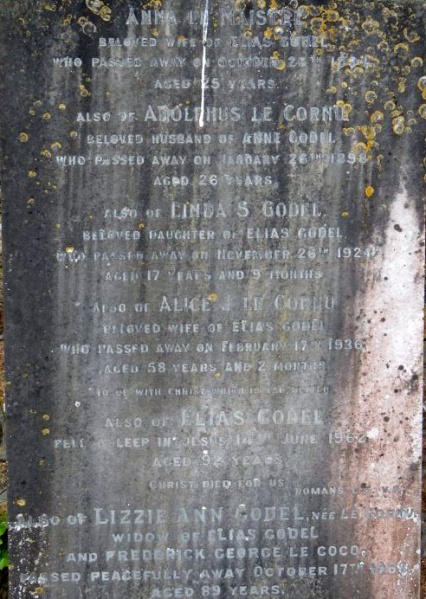 ANNA LE MAISTRE
BELOVED WIFE OF ELIAS GODEL
WHO PASSED AWAY ON OCTOBER
AGED 25 YEARS.
ALSO OF ADOLPHUS LE CORNU
BELOVED HUSBAND OF ANNE GODEL
WHO PASSED AWAY ON JANUARY 26TH 1898
AGED 26 YEARS.
ALSO OF LINDA S. GODEL
BELOVED DAUGHTER OF ELIAS GODEL
WHO PASSED AWAY ON NOVEMBER 26TH 1924
AGED 17 YEARS AND 9 MONTHS
ALSO OF ALICE J. LE CORNU
BELOVED WIFE OF ELIAS GODEL
WHO PASSED AWAY ON FEBRUARY 17TH 1936
AGED 58 YEARS AND 2 MONTHS
TO BE WITH CHRIST WHICH IS FAR BETTER
ALSO OF ELIAS GODEL
FELL ASLEEP IN JESUS 14TH JUNE 1962
AGED 92 YEARS.
CHRIST DIED FOR US
ROMANS
ALSO OF LIZZIE ANN GODEL, NÉE LE
WIDOW OF ELIAS GODEL
AND FREDERICK GEORGE LE COCQ
PASSED PEACEFULLY AWAY OCTOBER 17TH
AGED 89 YEARS.